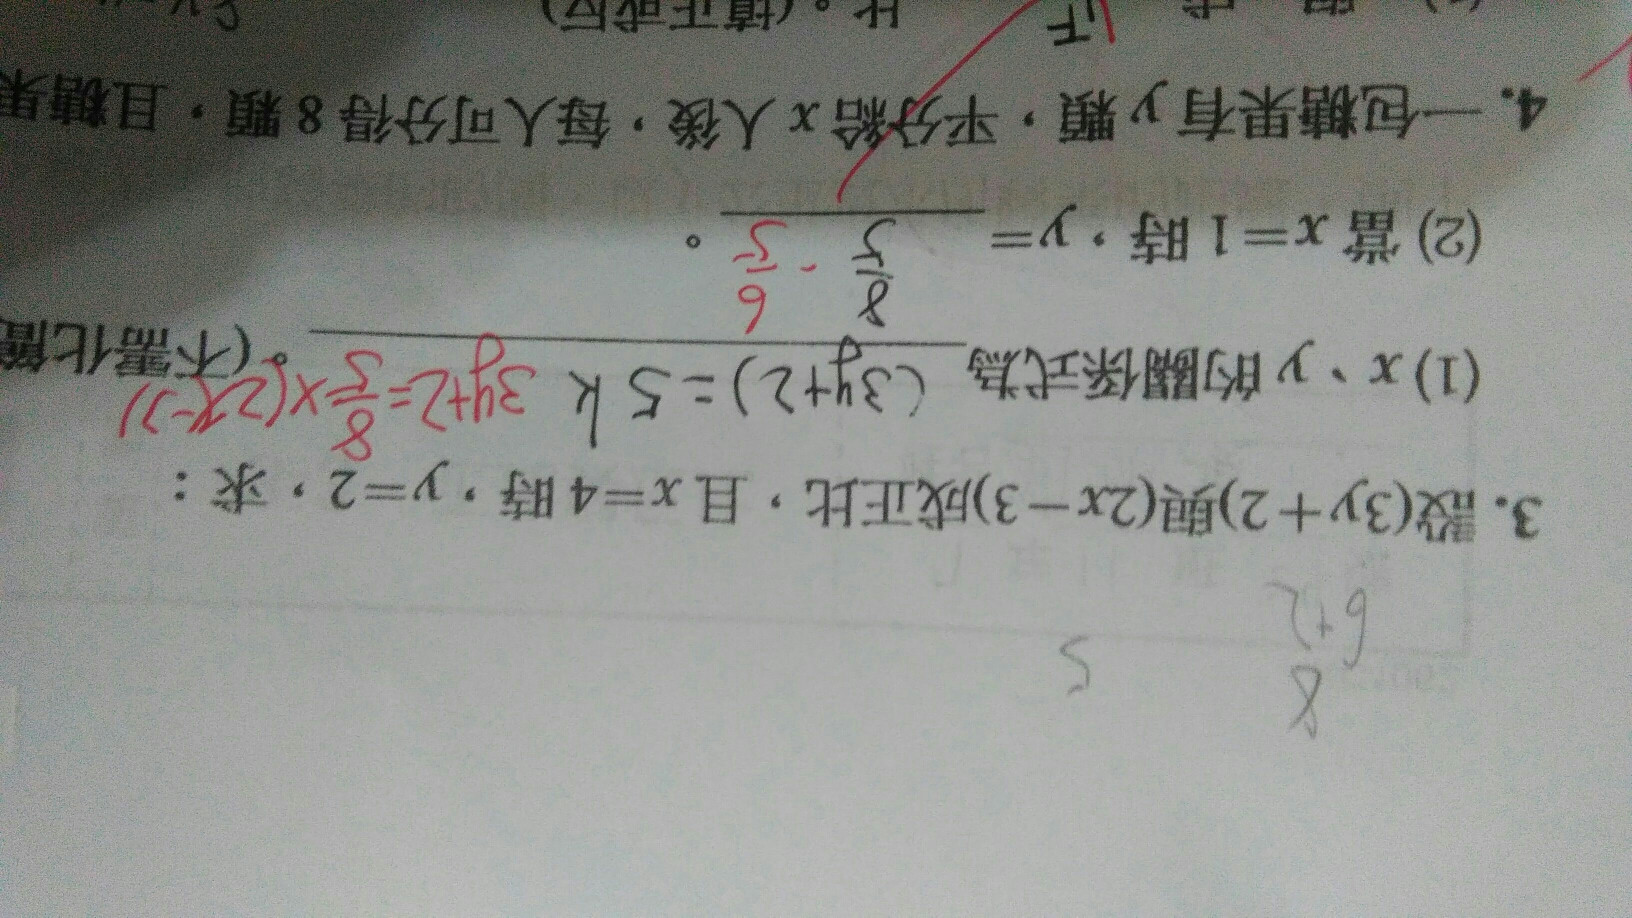 8
6+2
5
3. 設(3y+2)與(2x-3)成正比，且x=4時，y=2，求：
(1) x、y的關係式為 (3y+2)=5k 3y+2=8/5×(2x-3)。(不需化簡
(2) 當x=1時，y= 8/5 -6/5。
4. 一包糖果有y顆，平分給x人後，每人可分得8顆，且糖果
正 比。(填正或反)